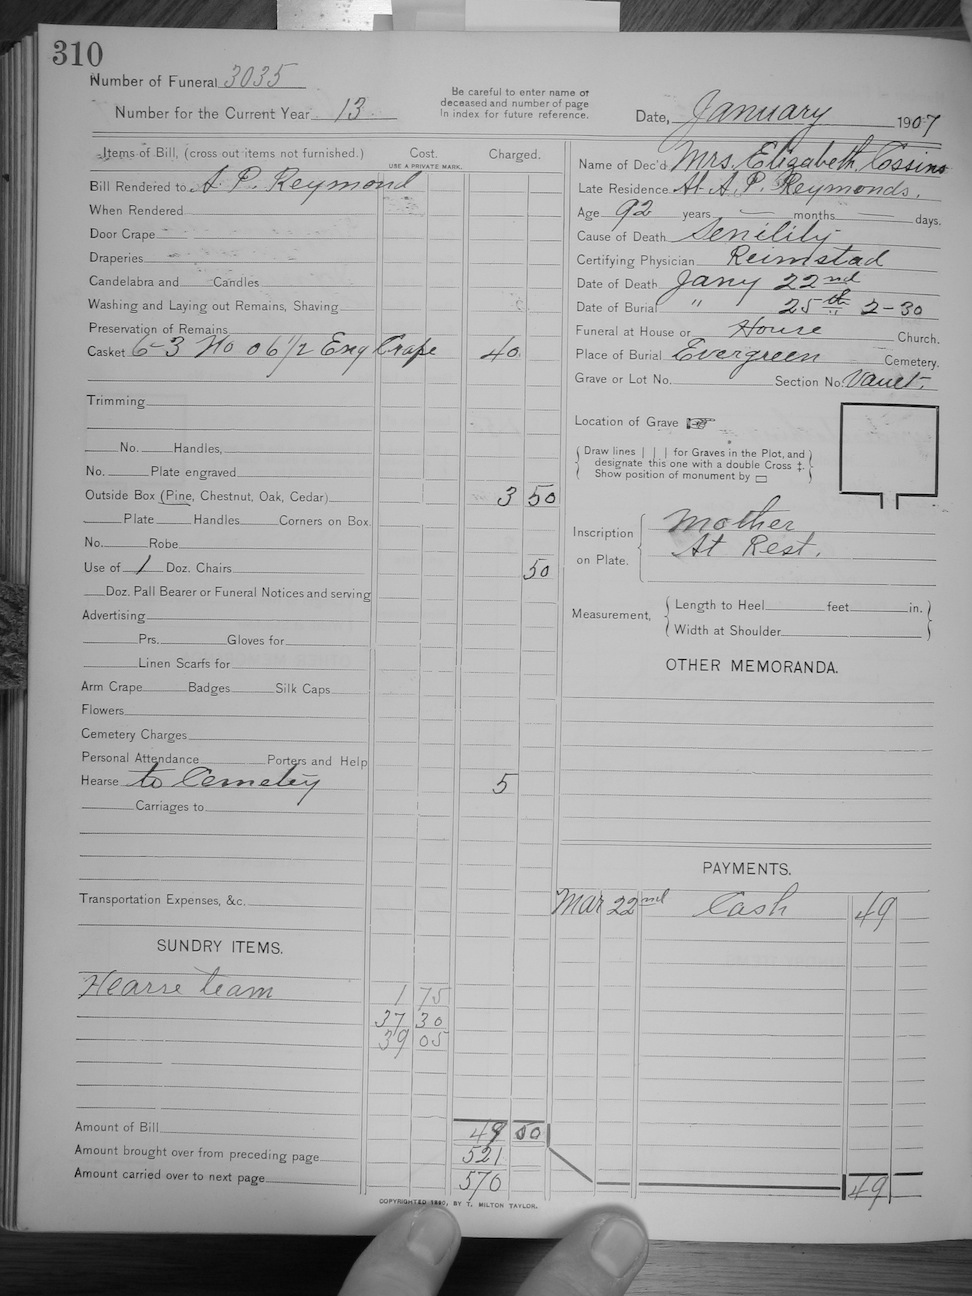 310
Number of Funeral 3035
Number for the Current Year 13
Be careful to enter name of
deceased and number of page
in index for future reference.
Date, January 1907
Items of Bill, (cross out items not furnished.) Cost. Charged.
USE A PRIVATE MARK.
Bill Rendered to A. P. Reymond
When Rendered
Door Crape
Draperies
Candelabra and Candles
Washing and Laying out Remains, Shaving
Preservation of Remains
Casket 6-3 No 0 6 1/2 Eng Crape 40
Trimming
No. Handles,
No. Plate engraved
Outside Box (Pine, Chestnut, Oak, Cedar) 3 50
Plate Handles Corners on Box.
No. Robe
Use of 1 Doz. Chairs 50
Doz. Pall Bearer or Funeral Notices and serving
Advertising
Prs. Gloves for
Linen Scarfs for
Arm Crape Badges Silk Caps
Flowers
Cemetery Charges
Personal Attendance Porters and Help
Hearse to Cemetery 5
Carriages to
Transportation Expenses, &c.
SUNDRY ITEMS.
Hearse team 1 75
37 30
39 05
Amount of Bill 49 00
Amount brought over from preceding page 521
Amount carried over to next page 570
Name of Dec'd Mrs. Elizabeth Cossins
Late Residence At A. P. Reymonds.
Age 92 years — months — days.
Cause of Death Senility
Certifying Physician Reimstad
Date of Death Jany 22nd
Date of Burial " 25th 2-30
Funeral at House or House Church.
Place of Burial Evergreen Cemetery.
Grave or Lot No. Section No. Vault.
Location of Grave
Draw lines | | | for Graves in the Plot, and
designate this one with a double Cross ‡.
Show position of monument by ▭
Inscription on Plate.
Mother
At Rest.
Measurement,
Length to Heel feet in.
Width at Shoulder
OTHER MEMORANDA.
PAYMENTS.
Mar 22nd Cash 49
49
COPYRIGHTED 1890, BY T. MILTON TAYLOR.